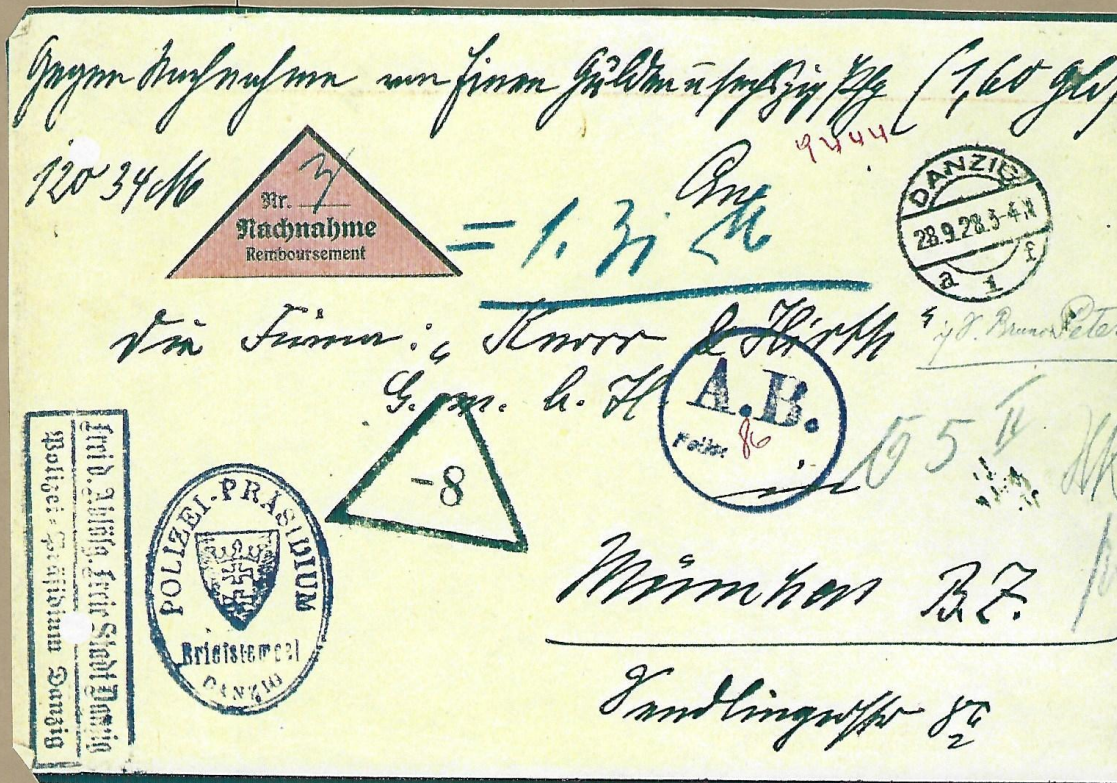 Gegen Nachnahme von Einen Gulden u sechszig Pfg (1,60 Gld
9444
120 34 M
Nr.
Nachnahme
Remboursement
An
= 1.
DANZIG
28.9.28.3-4 N
a 1 f
die Firma: „ Knorr & Hirth “
Bruno Pete
G. m. b. H
A.B.
86
-8
in
55 II
frei d. Ablösg. Freie Stadt Danzig
Polizei-Präsidium Danzig
POLIZEI-PRÄSIDIUM
Briefstempel
DANZIG
München B.Z.
Sendlingerstr